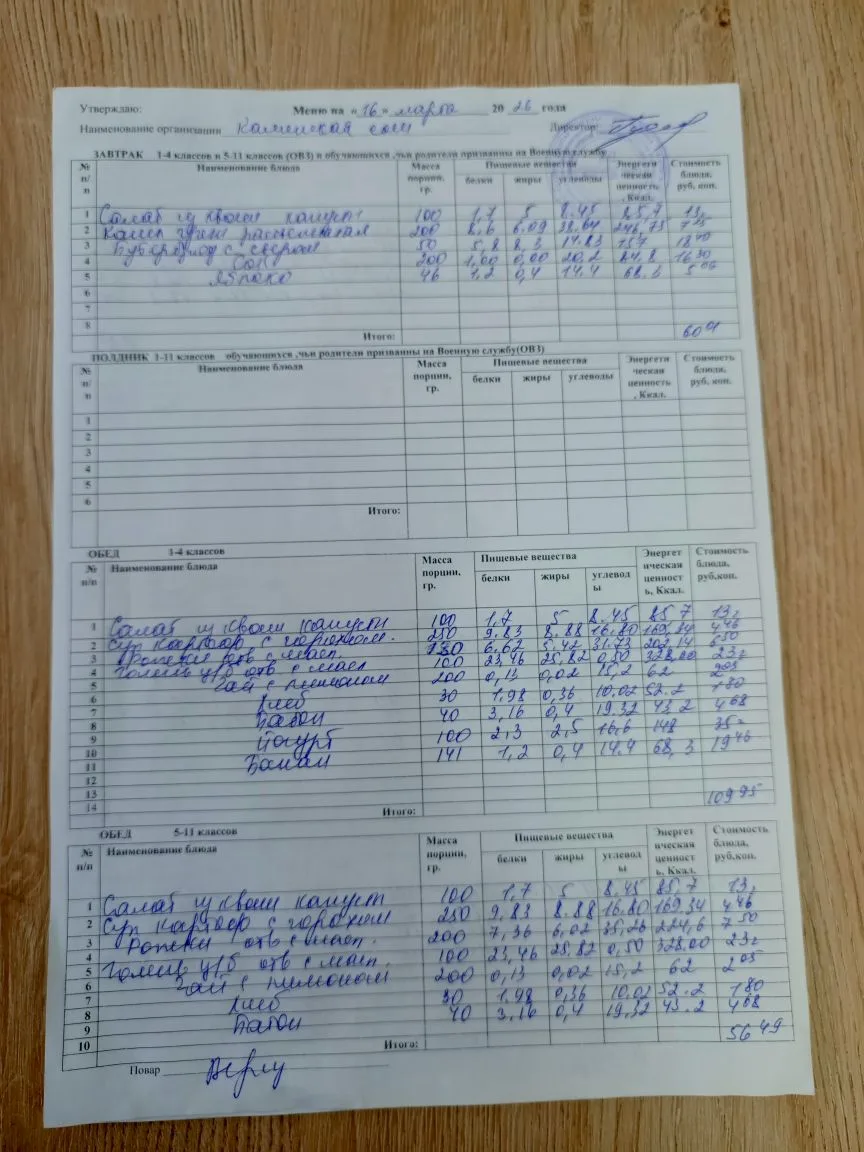 Утверждаю: Меню на «16» марта 2026 года
Наименование организации Каменская сош Директор:
ЗАВТРАК 1-4 классов и 5-11 классов (ОВЗ) и обучающихся ,чьи родители призванны на Военную службу
№ п/п Наименование блюда Масса порции, гр. Пищевые вещества Энергетическая ценность, Ккал. Стоимость блюда, руб, кон.
белки жиры углеводы
1 Салат из квеши капусты 100 1,7 5 8.45 85,7 13,
2 Каша гречн рассыпчатая 200 8,6 6.09 38,64 246,75
3 Бутерброд с сыром 50 5,8 8,3 14.83 157 18 40
4 Сок 200 1,00 0,00 20,2 84,8 16 30
5 Яблоко 46 1,2 0,4 14.4 68.3 5 06
6
7
8
Итого: 60 01
ПОЛДНИК 1-11 классов обучающихся ,чьи родители призванны на Военную службу(ОВЗ)
№ п/п Наименование блюда Масса порции, гр. Пищевые вещества Энергетическая ценность, Ккал. Стоимость блюда, руб, кон.
белки жиры углеводы
1
2
3
4
5
6
Итого:
ОБЕД 1-4 классов
№ п/п Наименование блюда Масса порции, гр. Пищевые вещества Энергетическая ценность, Ккал. Стоимость блюда, руб,кон.
белки жиры углеводы
1 Салат из квеши капусты 100 1,7 5 8.45 85 7 13,
2 Суп картоф с горохом. 250 9.83 8.88 16.80 169,34 4 46
3 Рожки отв с масл. 180 6.62 5.42 31.73 202,14 6 50
4 Голень ц/б отв с масл 100 23,46 25,82 0,50 328,00 23,
5 Чай с лимоном 200 0,13 0,02 15,2 62 2 05
6 Хлеб 30 1.98 0,36 10.02 52.2 1 80
7 Батон 40 3,16 0,4 19.32 43.2 4 68
8
9 Йогурт 100 2,3 2,5 16,6 148 35
10 Банан 141 1,2 0,4 14,4 68,3 19 46
11
12
13
14 Итого: 109 95
ОБЕД 5-11 классов
№ п/п Наименование блюда Масса порции, гр. Пищевые вещества Энергетическая ценность, Ккал. Стоимость блюда, руб,кон.
белки жиры углеводы
1 Салат из квеши капусты 100 1,7 5 8.45 85,7 13,
2 Суп картоф с горохом 250 9.83 8.88 16.80 169,34 4 46
3 Рожки отв с масл. 200 7,36 6,02 35,26 224,6 7 50
4 Голень ц/б отв с масл. 100 23,46 25,82 0,50 328,00 23,
5 Чай с лимоном 200 0,13 0,02 15,2 62 2 05
7 Хлеб 30 1,98 0,36 10.02 52.2 1 80
8 Батон 40 3,16 0,4 19,32 43.2 4 68
9
10 Итого: 56 49
Повар